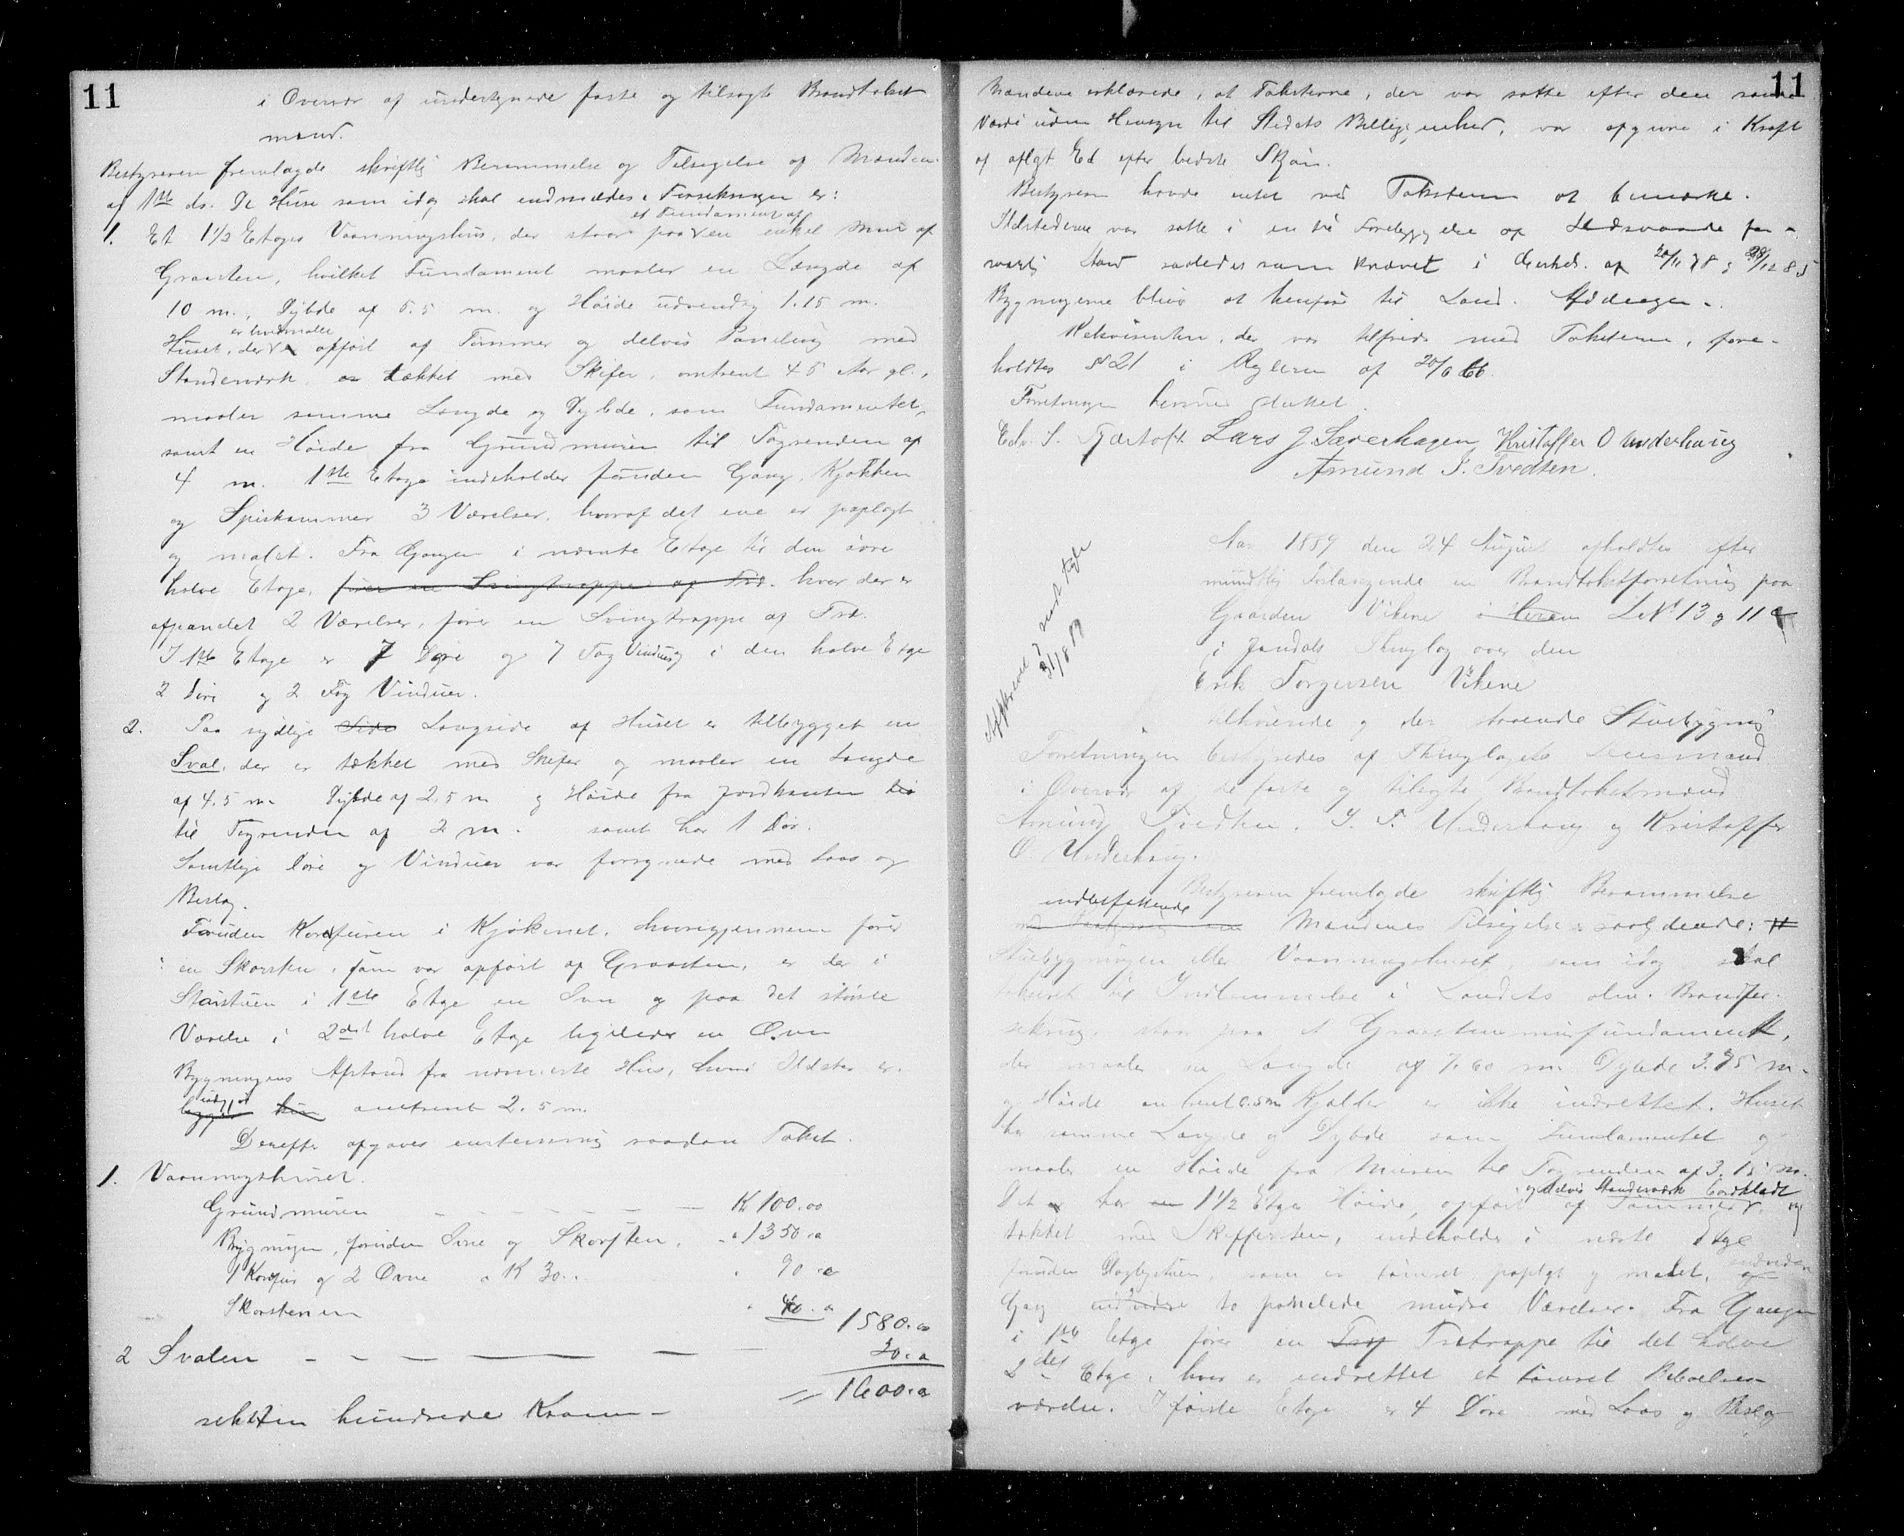 11
i Overvær af undertegnede faste og tilsagte Brandtakst
mænd.
Bestyreren fremlagde skriftlig Berammelse og Tilsigelse af Mændene
af 1ste ds. De Huse som idag skal indmeldes i Forsikringen er:
et Fundament af
1. Et 1½ Etages Vaaningshus, der staar paa en enkel Mur af
Graasten, hvilket Fundament maaler en Længde af
10 m., Dybde af 5.5 m. og Høide udvendig 1.15 m.
er hvidmalet
Huset, der er opført af Tømmer og delvis Paneling med
Standerværk, er tækket med Skifer, omtrent 45 Aar gl.,
maaler samme Længde og Dybde, som Fundamentet,
samt en Høide fra Grundmuren til Tagrenden af
4 m. 1ste Etage indeholder foruden Gang, Kjøkken
og Spiskammer 3 Værelser, hvoraf det ene er paplagt
og malet. Fra Gangen i nævnte Etage til den øvre
halve Etage, fører en Svingtrappe af Træ. hvor der er
afpanelet 2 Værelser, fører en Svingtrappe af Træ.
I 1ste Etage er 7 Døre og 7 Fag Vinduer, i den halve Etage
2 Døre og 2 Fag Vinduer.
2. Paa sydlige Side Langside af Huset er tilbygget en
Sval, der er tækket med Skifer og maaler en Længde
af 4.5 m. Dybde af 2.5 m og Høide fra Jordkanten til
til Tagrenden af 2 m. samt har 1 Dør.
Samtlige Døre og Vinduer var forsynede med Laas og
Beslag.
Foruden Komfuren i Kjøkkenet, hvorigjennem fører
en Skorsten, som var opført af Graasten, er der i
Storstuen i 1ste Etage en Ovn og paa det største
Værelse i 2det halve Etage ligeledes en Ovn
Bygningens Afstand fra nærmeste Hus, hvori Ildsted er
indlagt
omtrent 2.5 m.
Derefter afgaves enstemmig saadan Takst.
1. Vaaningshuset.
Grundmuren - - - - - K 100.00
Bygningen, foruden Ovne og Skorsten, - " 1350.00
1 Komfur og 2 Ovne a K 30.. " 90.00
Skorstenen " 40.00
1580.00
2 Svalen - - - - - 20.00
= 1600.00
seksten hundrede Kroner -
11
Mændene erklærede, at Taksterne, der var satte efter den sande
Værdi uden Hensyn til Stedets Beliggenhed, var afgivne i Kraft
af aflagt Ed efter bedste Skjøn.
Bestyreren havde intet ved Taksten at bemærke.
Ildstederne var satte i en til Forebyggelse af Ildsvaade for-
svarlig Stand saaledes som krævet i Cirkul. af 20/11 78 & 28/12 85
Bygningerne bliver at henføre til Land. Afdelingen.
Rekvirenten, der var tilfreds med Taksterne, fore-
holdtes § 21 i Reglerne af 20/6 66.
Forretningen hermed sluttet.
Edv. S. Lars J. Sæverhagen Kristoffer O Underhaug
Amund J. Tvedten.
Approberet
31/8 89
Aar 1889 den 24 August afholdtes efter
mundtlig Forlangende en Brandtakstforretning paa
Gaarden Vikene i Herem L.No 13 og 11 a
i Jondals Thinglag over den
Erik Torgersen Vikene
tilhørende og der staaende Stuebygning
Forretningen bestyredes af Thinglagets Lensmand
i Overvær af de faste og tilsagte Brandtakstmænd
Amund Tvedten, J. T. Underhaug og Kristoffer
O. Underhaug.
Bestyreren fremlagde skriftlig Berammelse
indbefattende
Mændenes Tilsigelse saalydende:
Stuebygningen eller Vaaningshuset, som idag skal
takseret til Indlemmelse i Landets alm. Brandfor-
sikring, staar paa et Graastensmurfundament,
der maaler en Længde af 7.60 m. Dybde 3.75 m.
og Høide omtrent 0.5m Kjælder er ikke indrettet. Huset
har samme Længde og Dybde som Fundamentet og
maaler en Høide fra Muren til Tagrenden af 3.15 m.
og delvis Standerværk bordklædt
Det har en 1½ Etages Høide, opført af Tømmer, og
tækket med Skiffersten, indeholder i nærste Etage
foruden Dagligstuen, som er tømret paplagt og malet,
Gang to panelede mindre Værelser. Fra Gangen
i 1ste Etage fører en Trap Trætrappe til det halve
2det Etage, hvor er indrettet et tømret Beboelses-
værelse. I første Etage er 4 Døre med Laas og Beslag